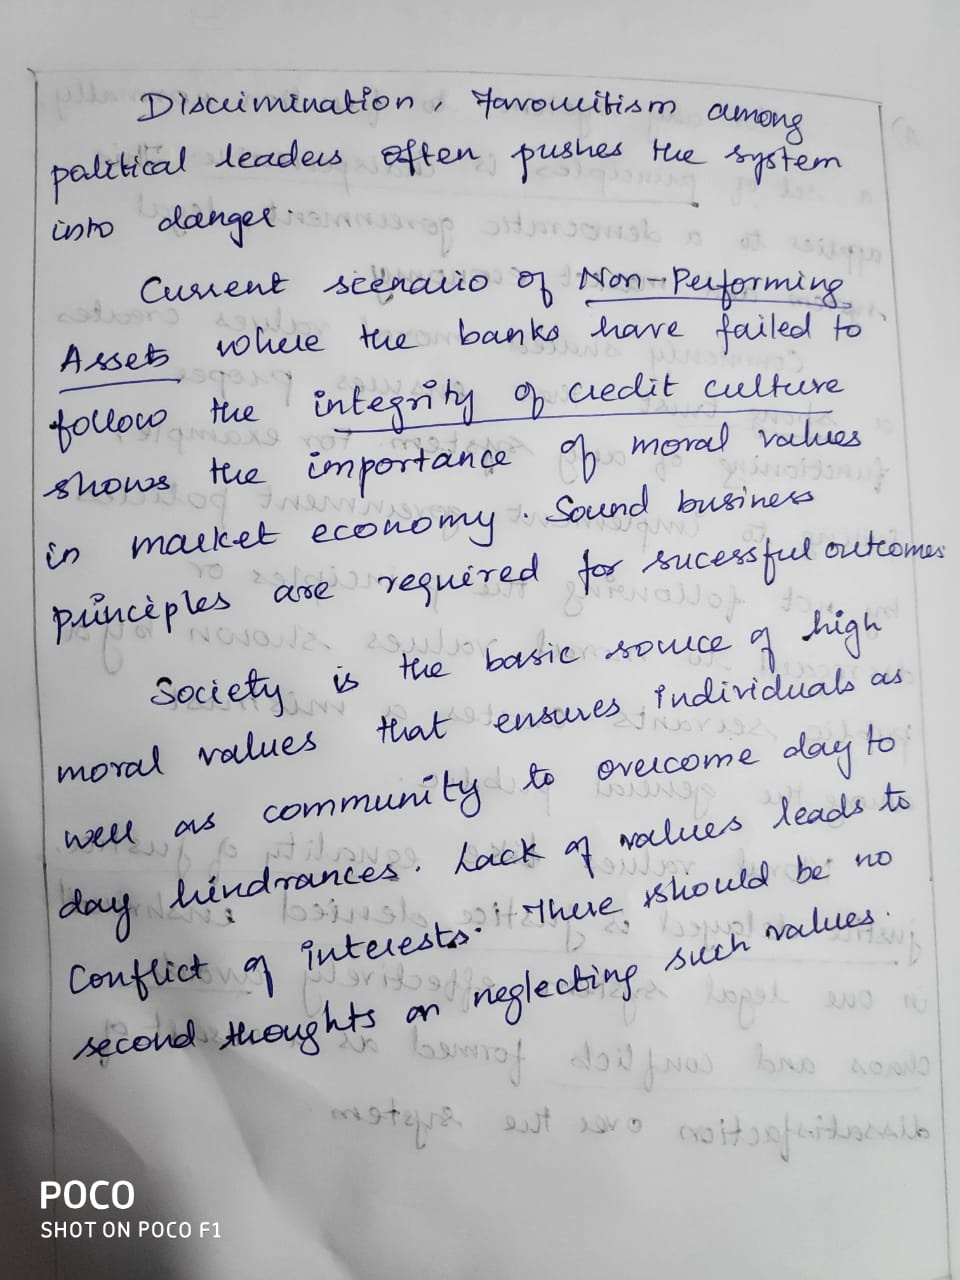 Discrimination, Favouritism among
political leaders often pushes the system
into danger.
Current scenario of Non-Performing
Assets where the banks have failed to
follow the integrity of credit culture
shows the importance of moral values
in market economy. Sound business
principles are required for sucessful outcomes
Society is the basic source of high
moral values that ensures individuals as
well as community to overcome day to
day hindrances. Lack of values leads to
Conflict of interests. There should be no
second thoughts on neglecting such values.
POCO
SHOT ON POCO F1